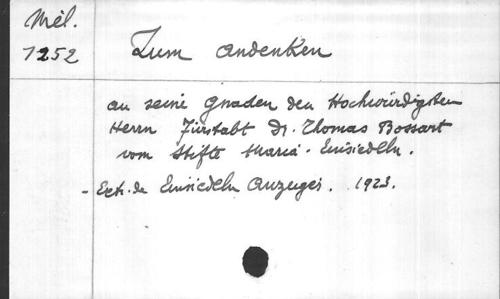 Mél.
1252
Zum andenken
an seine Gnaden den Hochwürdigsten
Herrn Fürstabt Dr. Thomas Bossart
vom Stifte Maria-Einsiedeln.
- Extr. de Einsiedeln Anzeiger. 1923.